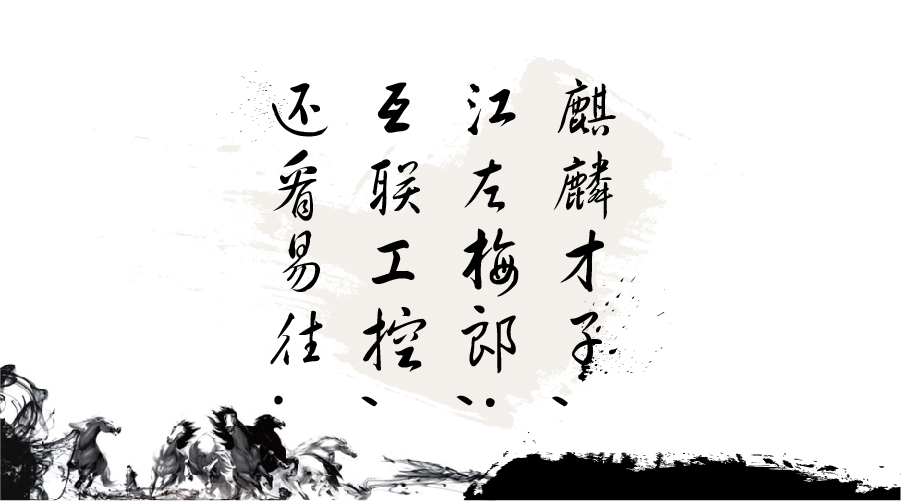 麒麟才子，
江左梅郎；
互联工控，
还看易往.